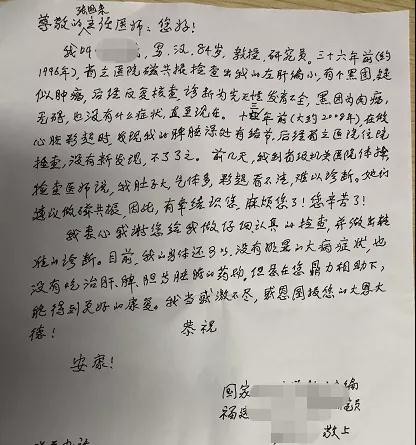 张国荣
尊敬的主任医师:您好!
我叫 ,男,汉,84岁,教授,研究员。三十六年前(约
1996年),省立医院磁共振检查出我的左肝偏小,有个黑团,疑
似肿瘤,后经反复核查,诊断为先天性发育不全,黑团为肉瘤,
也没有什么症状,直至现在。十三年前(大约2008年),在做
心脏彩超时,发现我的脾脏深处有结节,后经省立医院住院
检查,没有新发现,不了了之。前几天,我到省级机关医院体检,
检查医师说,我肚子大,气体多,彩超看不清,难以诊断。她们
建议做磁共振,因此,有幸结识您,麻烦您了!您辛苦了!
我衷心感谢您给我做仔细认真的检查,并做出精
准的诊断。目前,我的身体还可以,没有明显的大病症状,也
没有吃治肝、脾、胆与胰腺的药物,但是在您鼎力相助下,
能得到更好的康复。我当感激不尽,感恩图报您的大恩大
德!
恭祝
安康!
国家 编
福建 员
敬上